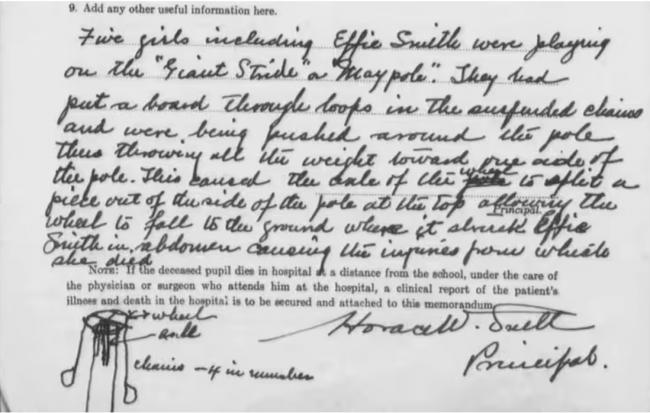 9. Add any other useful information here.
Five girls including Effie Smith were playing
on the "Giant Stride" "Maypole". They had
put a board through loops in the suspended chains
and were being pushed around the pole
thus throwing all the weight toward one side of
the pole. This caused the axle of the wheel to split a
piece out of the side of the pole at the top allowing the
Principal.
wheel to fall to the ground where it struck Effie
Smith in abdomen causing the injuries from which
she died
NOTE: If the deceased pupil dies in hospital at a distance from the school, under the care of
the physician or surgeon who attends him at the hospital, a clinical report of the patient's
illness and death in the hospital is to be secured and attached to this memorandum.
wheel
axle
chains – 4 in number
Horace W.
Principal.